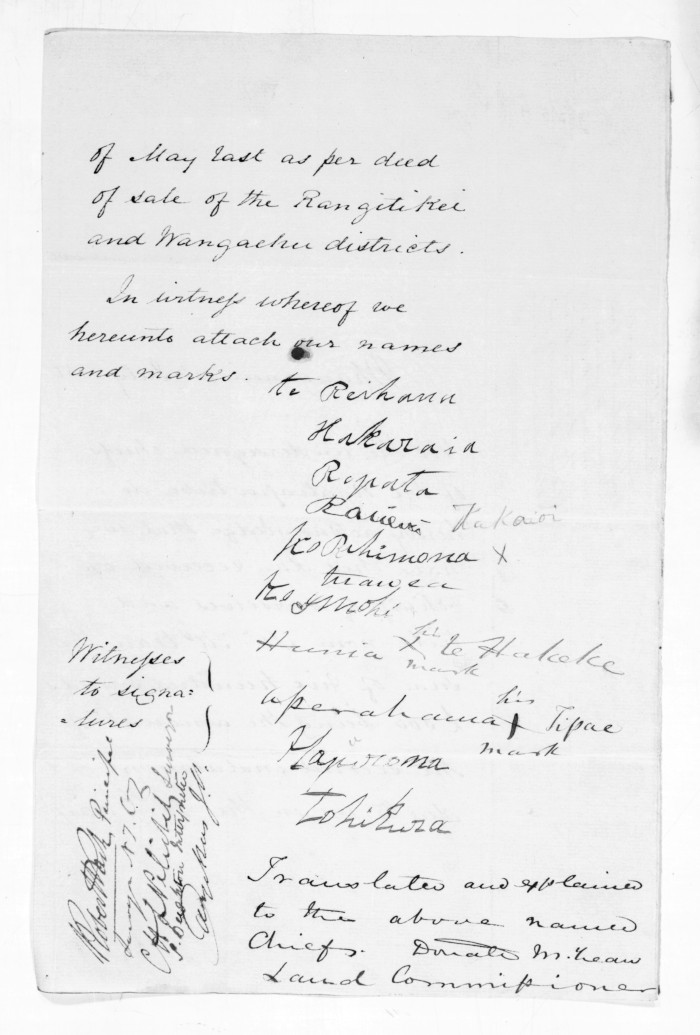 of May last as per deed
of sale of the Rangitikei
and Wangaehu districts.
In witness whereof we
hereunto attach our names
and marks.
te Reihana
Hakaraia
Ropata
Kakaroi
Ko Rihimona X
Ko Mohi
Hunia his X mark te Hakeke
aperahama his X mark Tipae
Hapurona
Tohikura
Witnesses
to signa-
-tures
Robert Park Principal
Surveyor N.Z.C.
Surveyor
Interpreter
Translated and explained
to the above named
Chiefs. Donald McLean
Land Commissioner